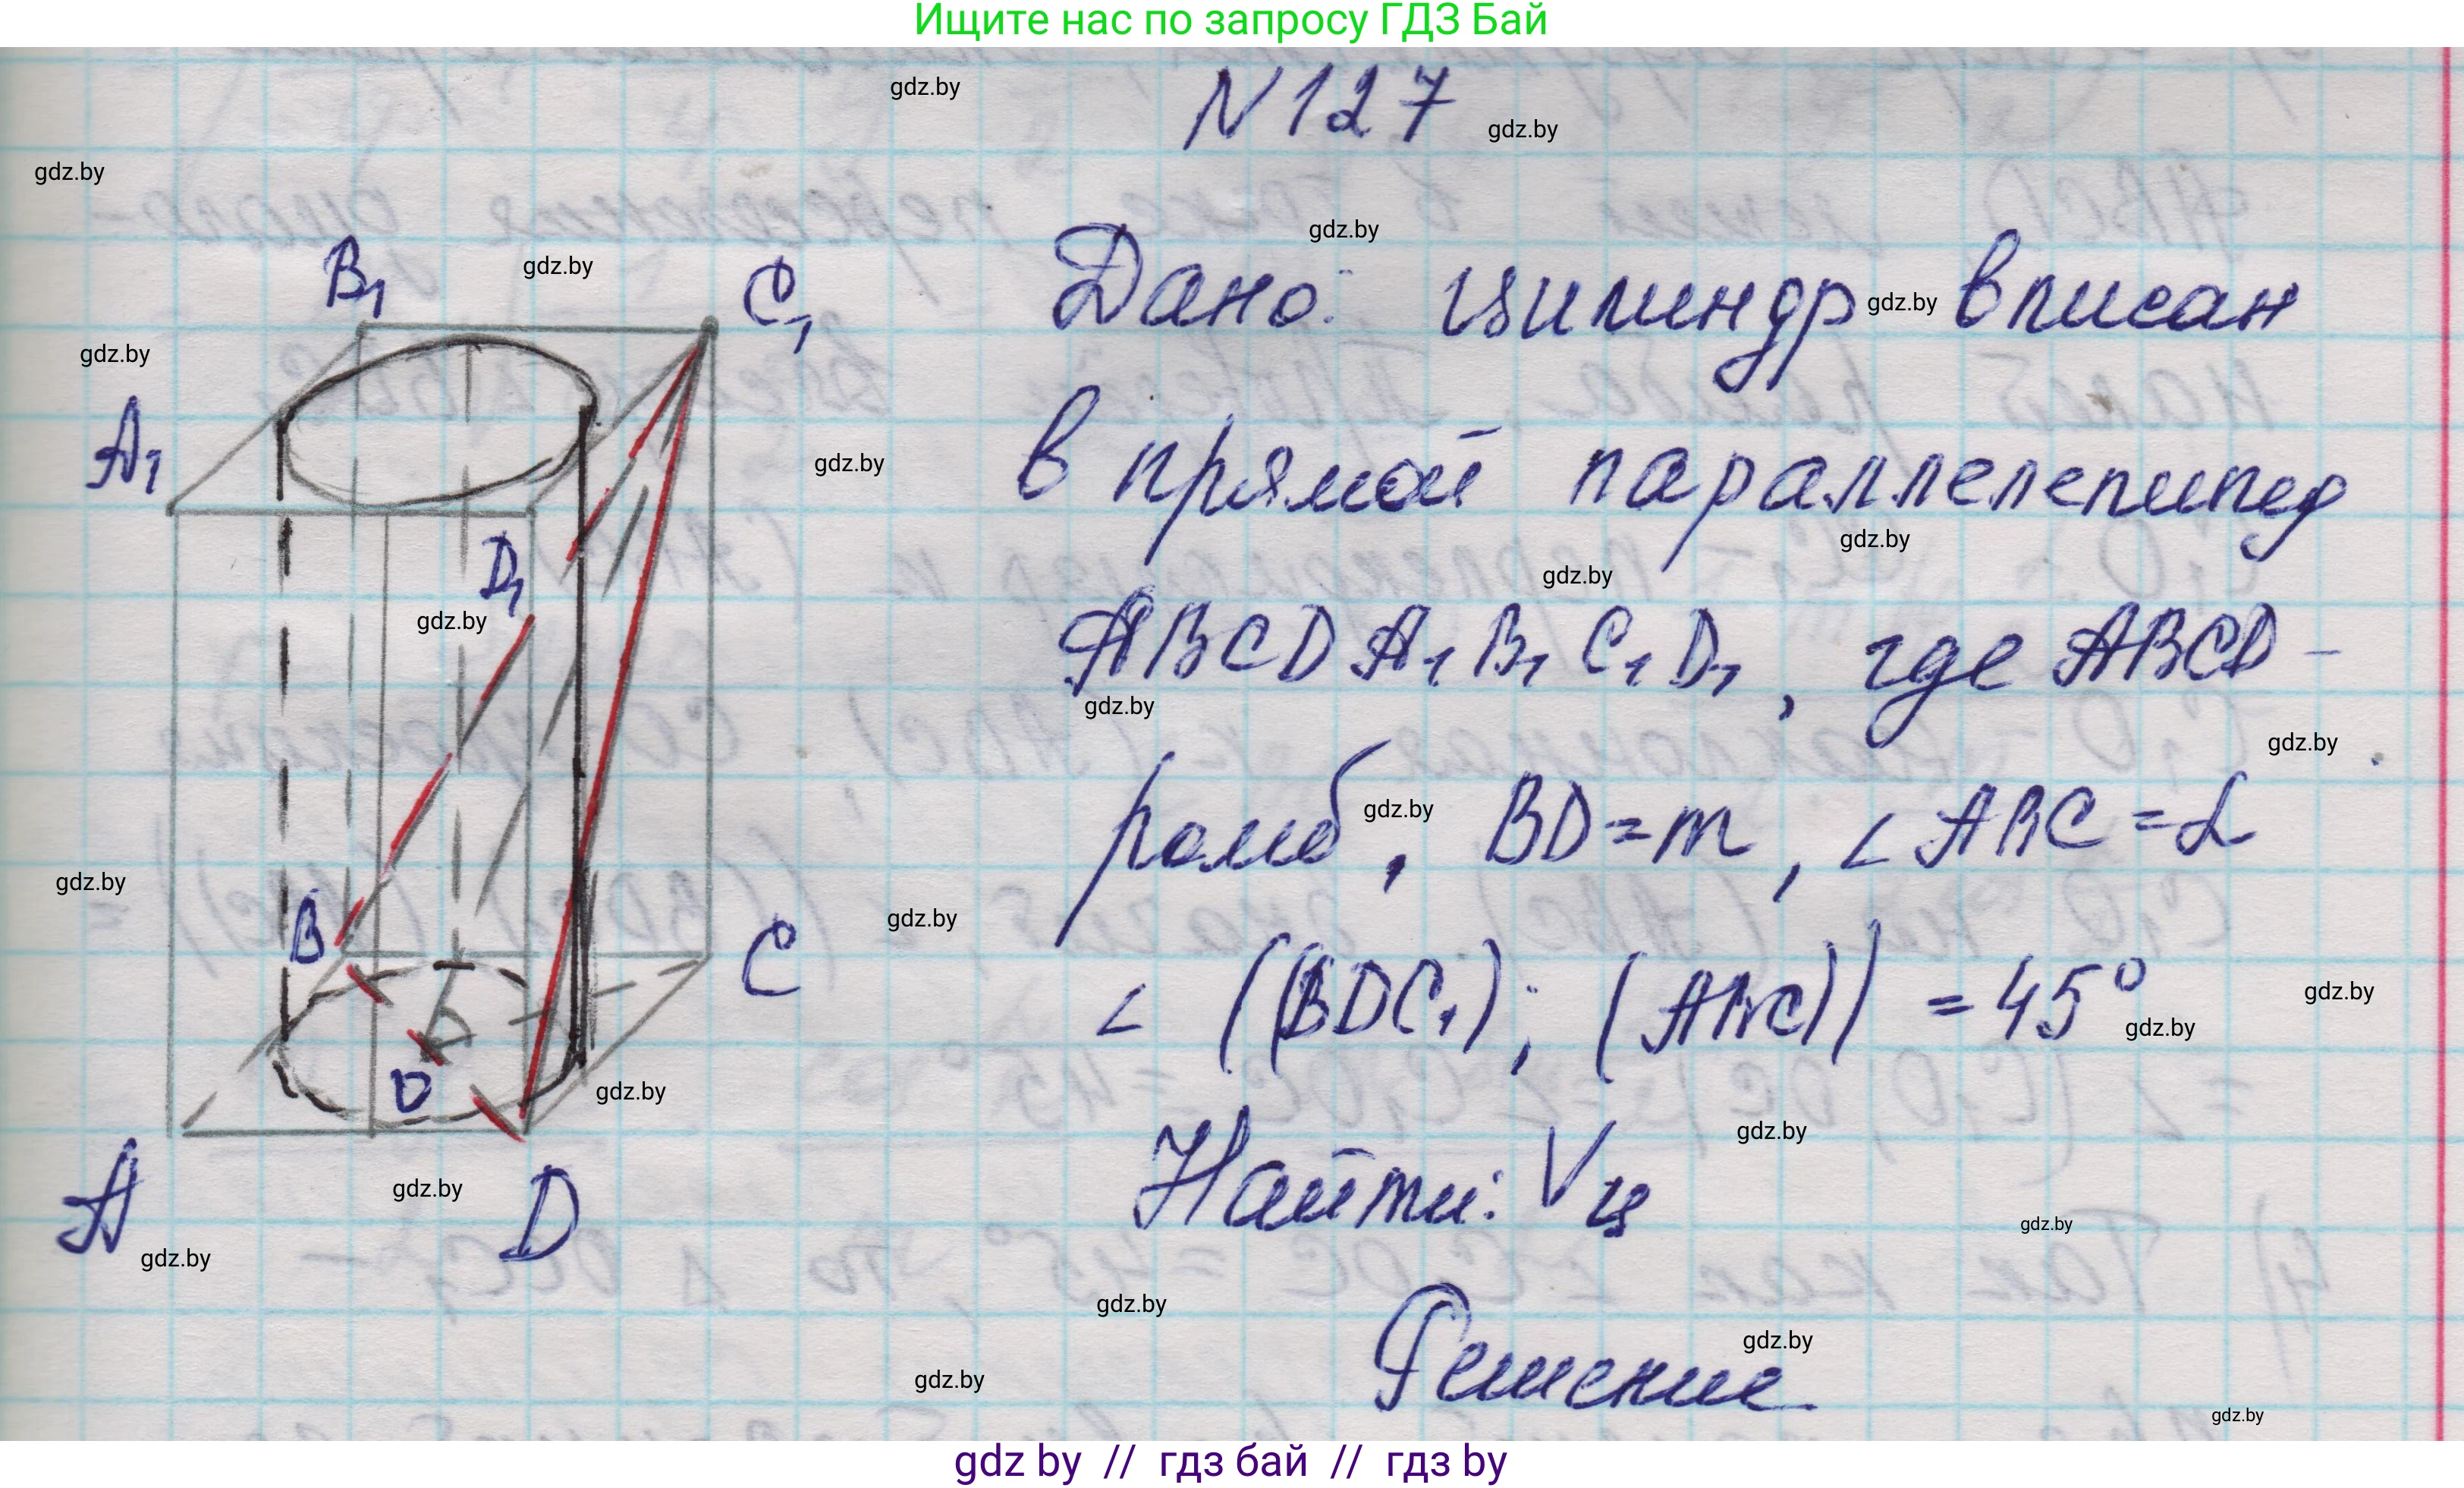 Ищите нас по запросу ГДЗ Бай
N127
gdz.by
gdz.by
gdz.by
gdz.by
gdz.by
B₁
C₁
Дано: цилиндр вписан
gdz.by
gdz.by
A₁
в прямой параллелепипед
gdz.by
gdz.by
gdz.by
D₁
gdz.by
ABCDA₁B₁C₁D₁, где ABCD –
gdz.by
gdz.by
ромб, BD=m, ∠ABC=α
gdz.by
gdz.by
gdz.by
B
C
∠((BDC₁); (ABC)) = 45°
gdz.by
gdz.by
O
gdz.by
gdz.by
A
D
Найти: Vц
gdz.by
gdz.by
gdz.by
gdz.by
Решение
gdz.by
gdz.by
gdz.by
gdz by // гдз бай // гдз by